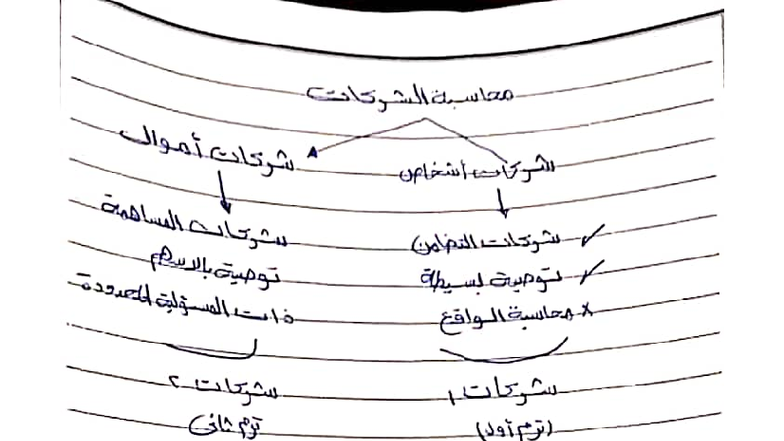 محاسبة الشركات
شركات أشخاص
شركات أموال
شركات التضامن
توصية بسيطة
محاسبة الواقع
شركات ١
(ترم أول)
شركات المساهمة
توصية بالاسهم
ذات المسؤلية المحدودة
شركات ٢
ترم ثاني